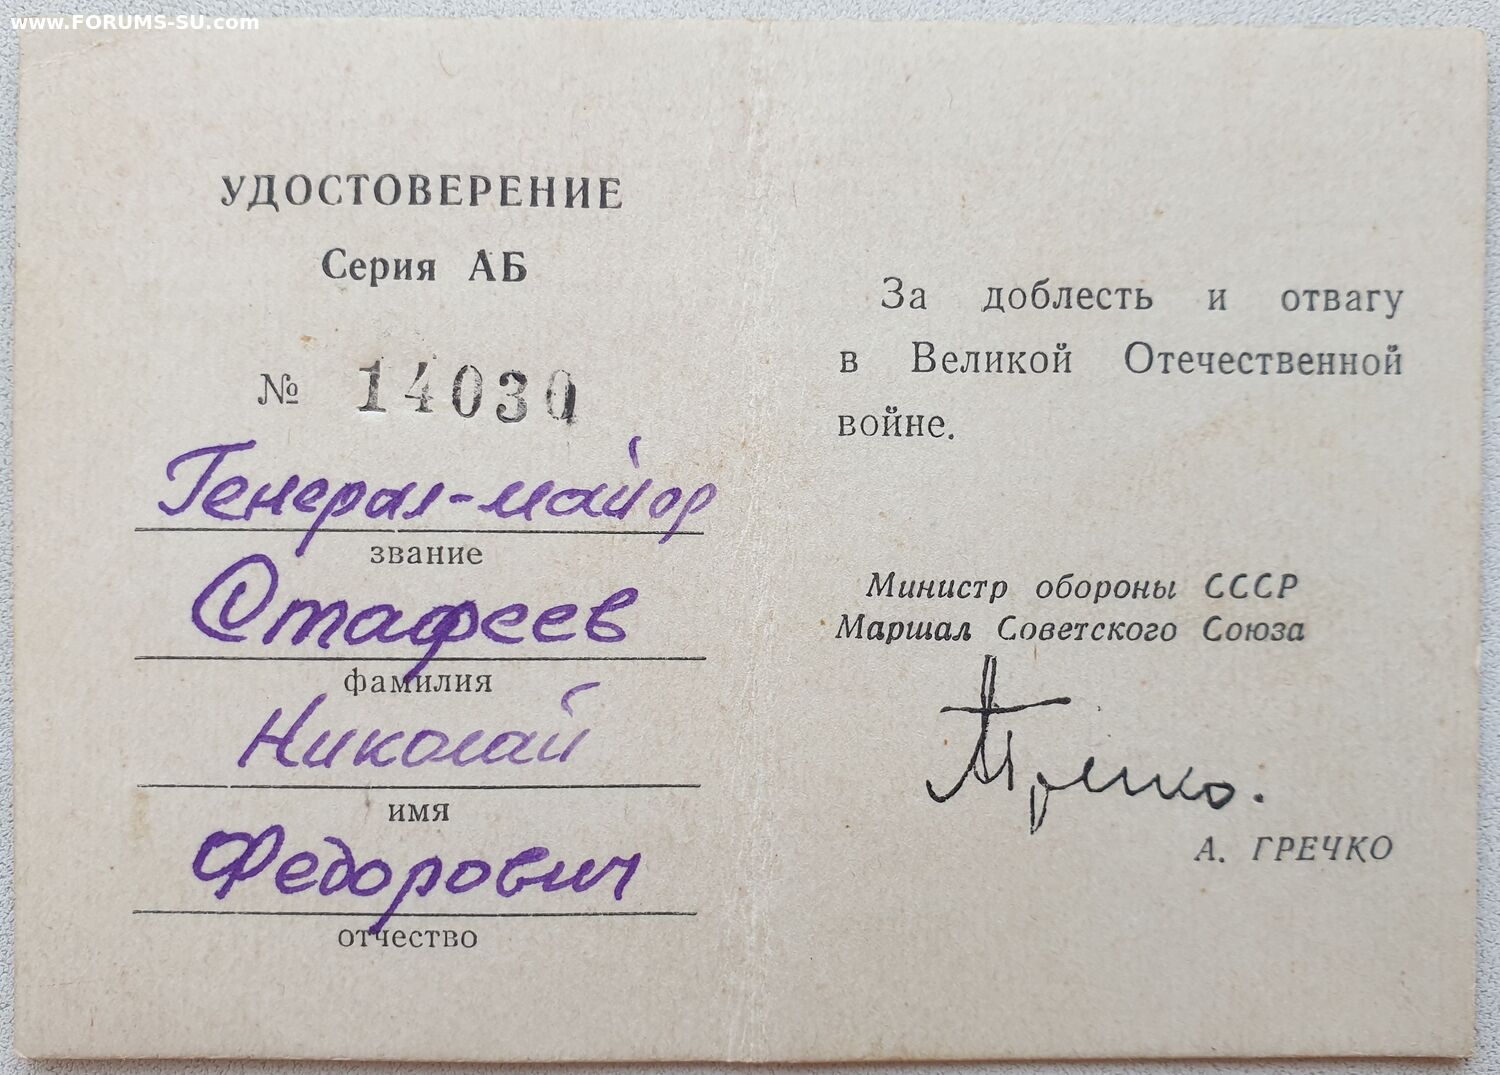 www.FORUMS-SU.com
УДОСТОВЕРЕНИЕ
Серия АБ
№ 14030
Генерал-майор
звание
Стафеев
фамилия
Николай
имя
Федорович
отчество
За доблесть и отвагу
в Великой Отечественной
войне.
Министр обороны СССР
Маршал Советского Союза
АГречко.
А. ГРЕЧКО